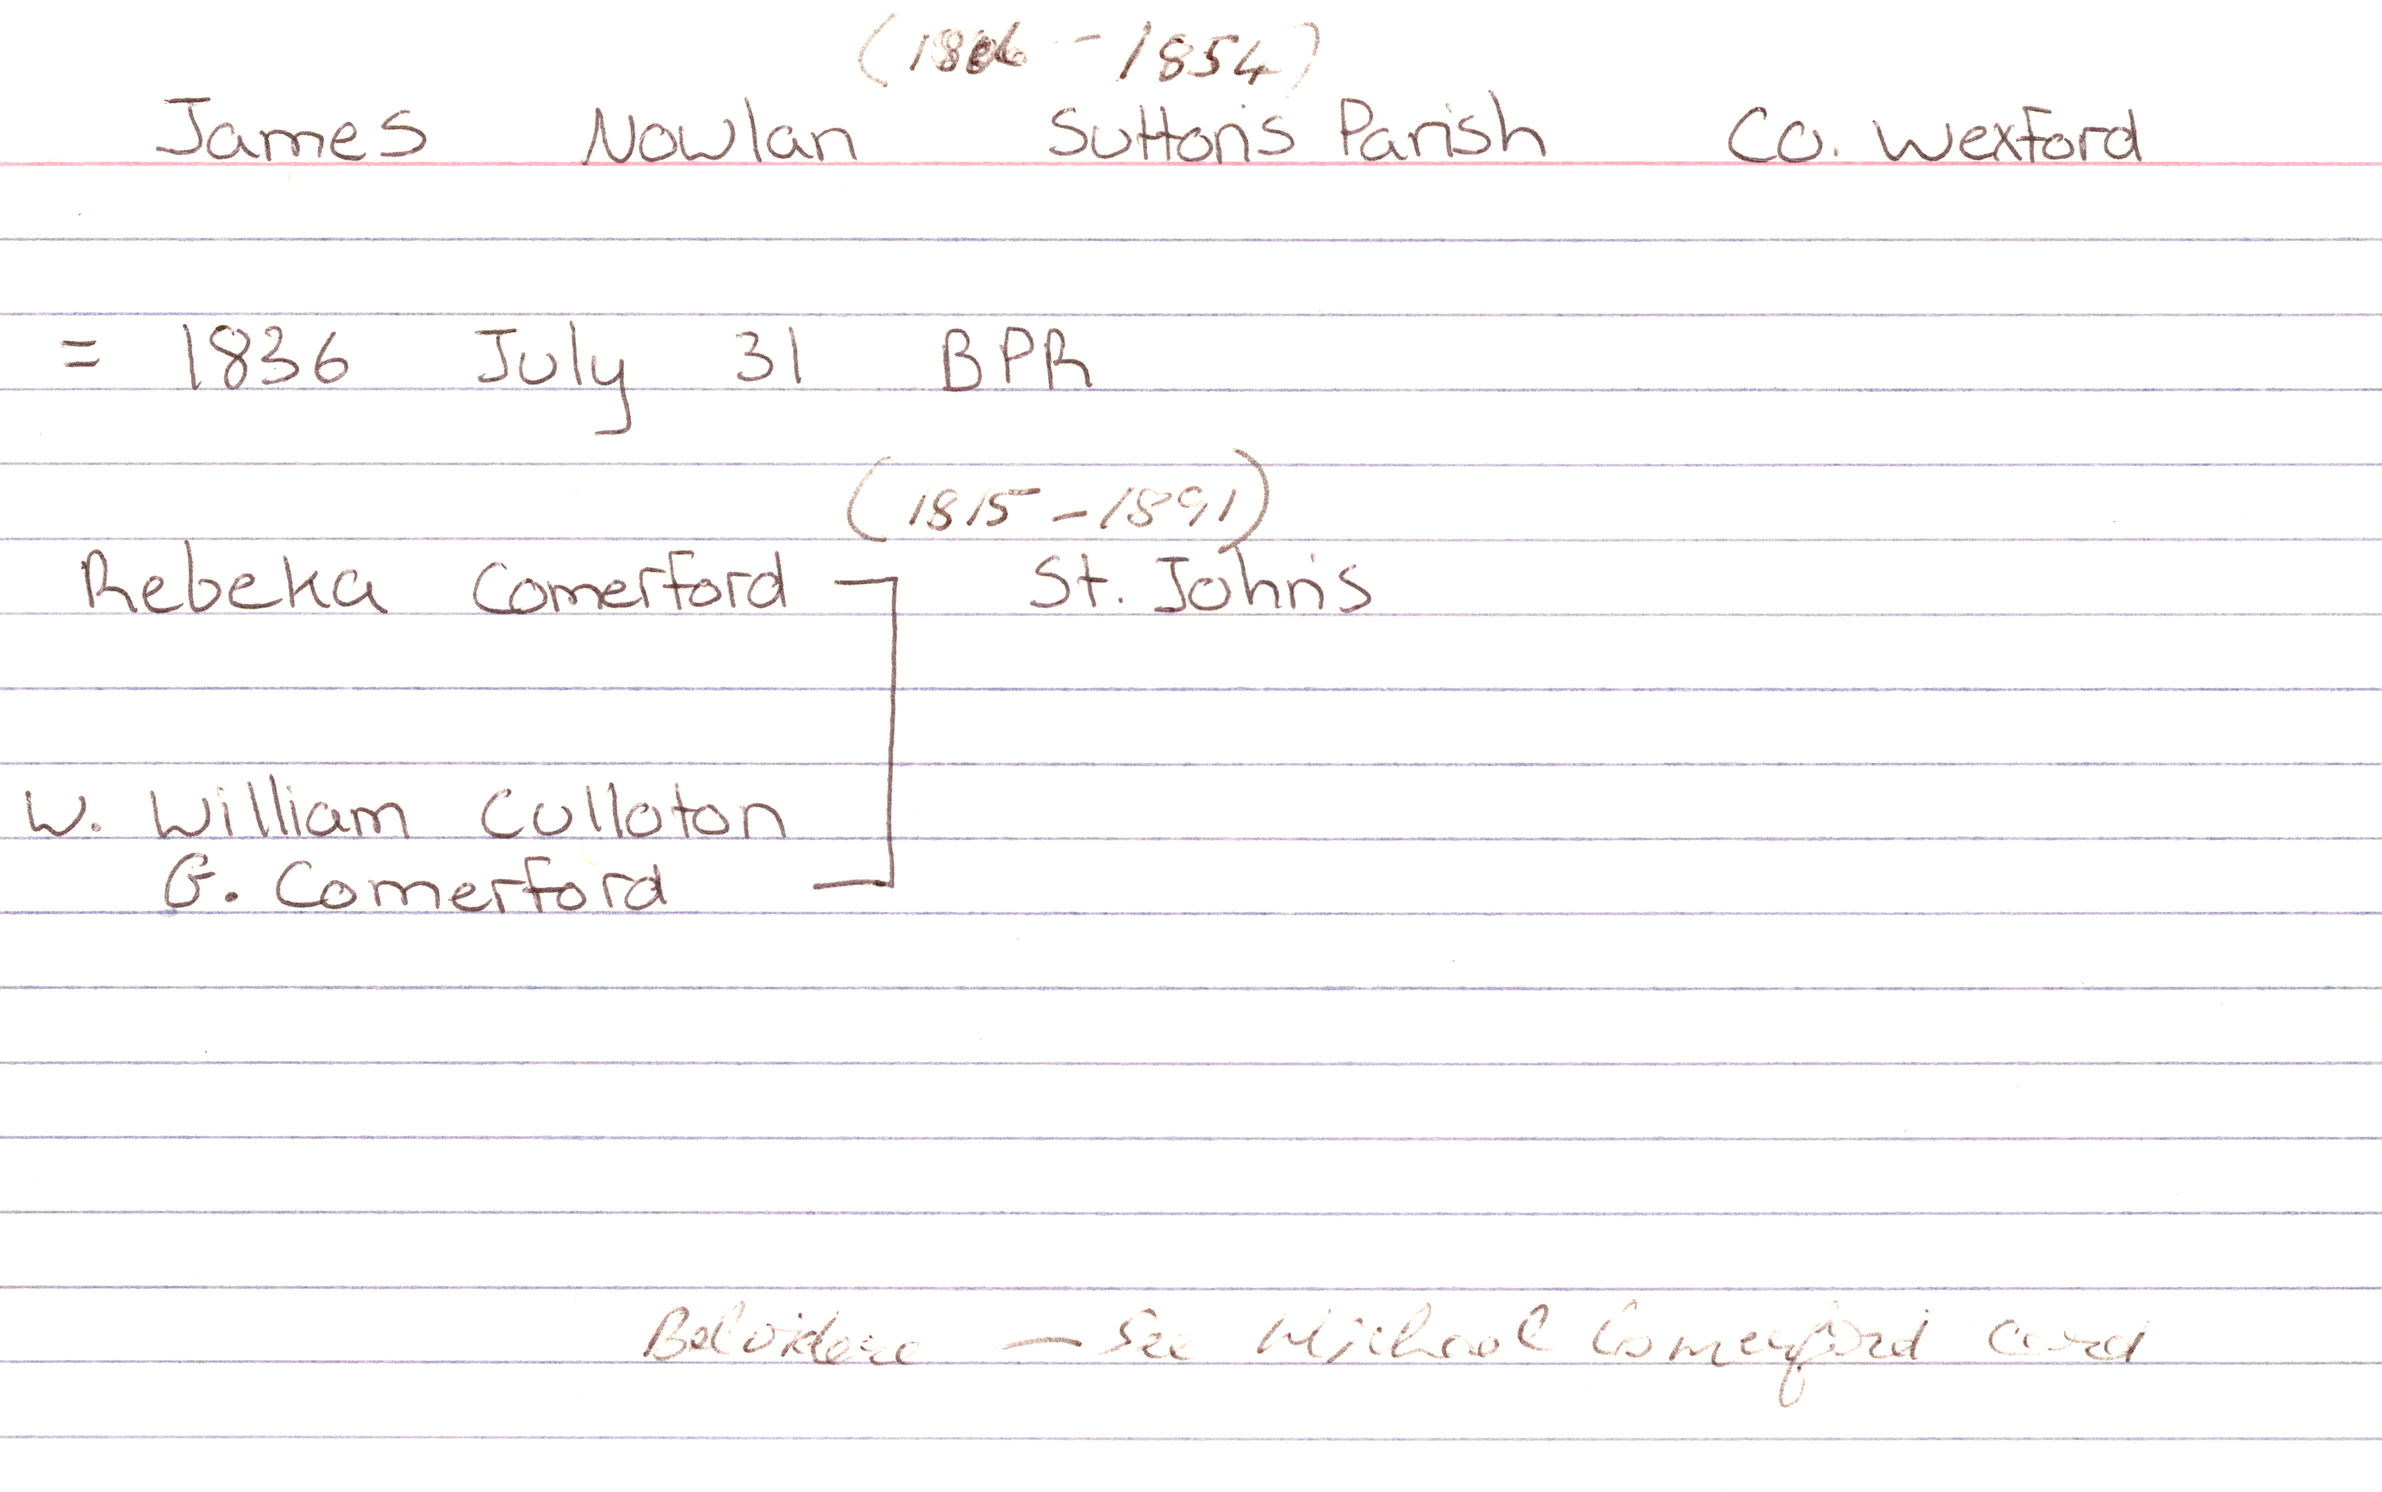 (1806 - 1854)
James Nowlan Sutton's Parish Co. Wexford
= 1836 July 31 BPR
(1815 - 1891)
Rebeka Comerford St. John's
W. William Culloton
G. Comerford
Belvidere — See Michael Comerford card